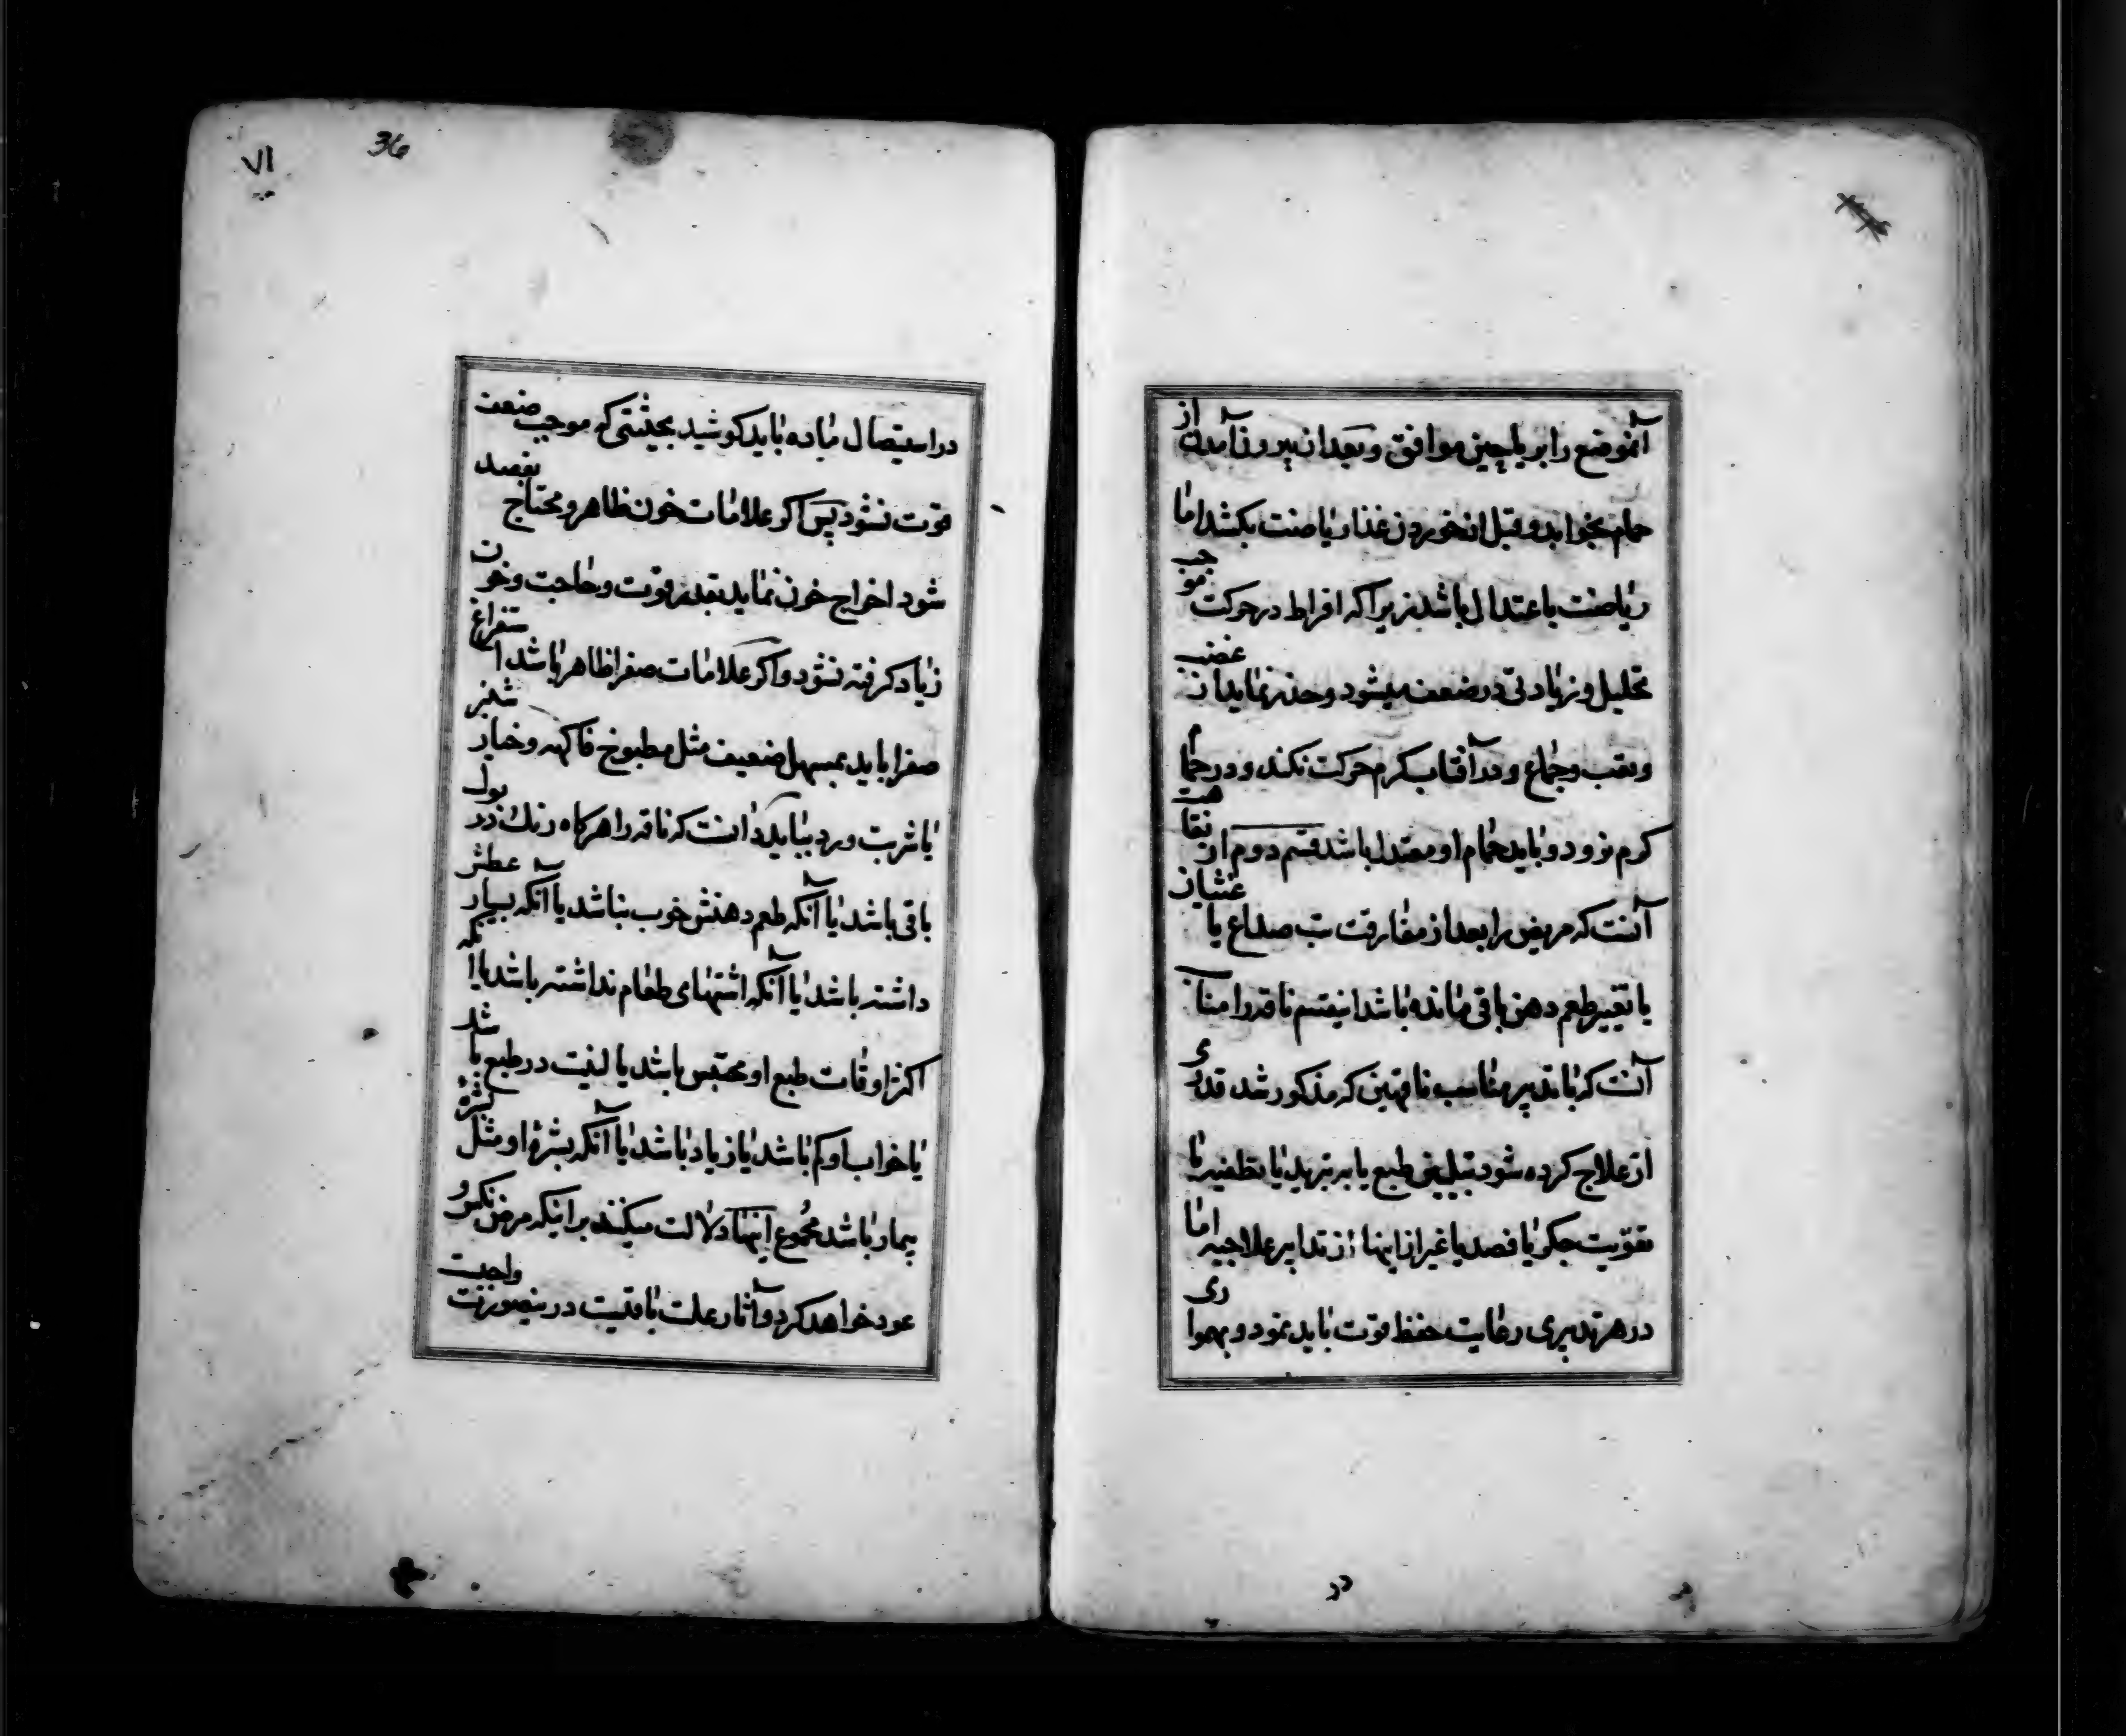 آنموضع را بریاحین موافق و بعد از بیرون آمدن از
حمام بخوابد و قبل از خوردن غذا ریاضت بکشد اما
ریاضت باعتدال باشد زیرا که افراط در حرکت موجب
تحلیل و زیادتی در ضعف میشود و حذر نماید از غضب
و تعب و جماع و در آفتاب کرم حرکت نکند و در حمام
کرم نرود و باید حمام او معتدل باشد قسم دوم از نقاهت
آنست که مریض را بعد از مفارقت تب صداع یا غثیان
یا تغییر طعم دهن باقی مانده باشد اینقسم ناقه را مناسب
آنست که با تدبیر مناسب ناقهین که مذکور شد قدری
از علاج کرده شود بتلیین طبع یا بر تبرید یا بتطفیه یا
تقویت جکر یا فصد یا غیر از اینها از تدابیر علاجیه اما
در هر تدبیری رعایت حفظ قوت باید نمود و بهمواری
در
۷۱
36
در استیصال ماده باید کوشید بحیثیتی که موجب ضعف
قوت نشود پس اکر علامات خون ظاهر و محتاج بفصد
شود اخراج خون نماید بقدر قوت و حاجت و خون
زیاد کرفته نشود و اکر علامات صفرا ظاهر باشد استفراغ
صفرا باید بمسهل ضعیف مثل مطبوخ فاکهه و خیار شنبر
یا شربت ورد بباید دانست که ناقه را هرکاه رنك در بول
باقی باشد یا آنکه طعم دهنش خوب نباشد یا آنکه بسیار عطش
داشته باشد یا آنکه اشتهای طعام نداشته باشد یا انکه
اکثر اوقات طبع او محتبس باشد یا لنیت در طبع باشد
یا خواب او کم باشد یا زیاد باشد یا آنکه بشرۀ او مثل بشرۀ
بیمار باشد مجموع اینها دلالت میکنند بر اینکه مرض نکس
عود خواهد کرد و آثار علت باقیست در ینصورت واجبست